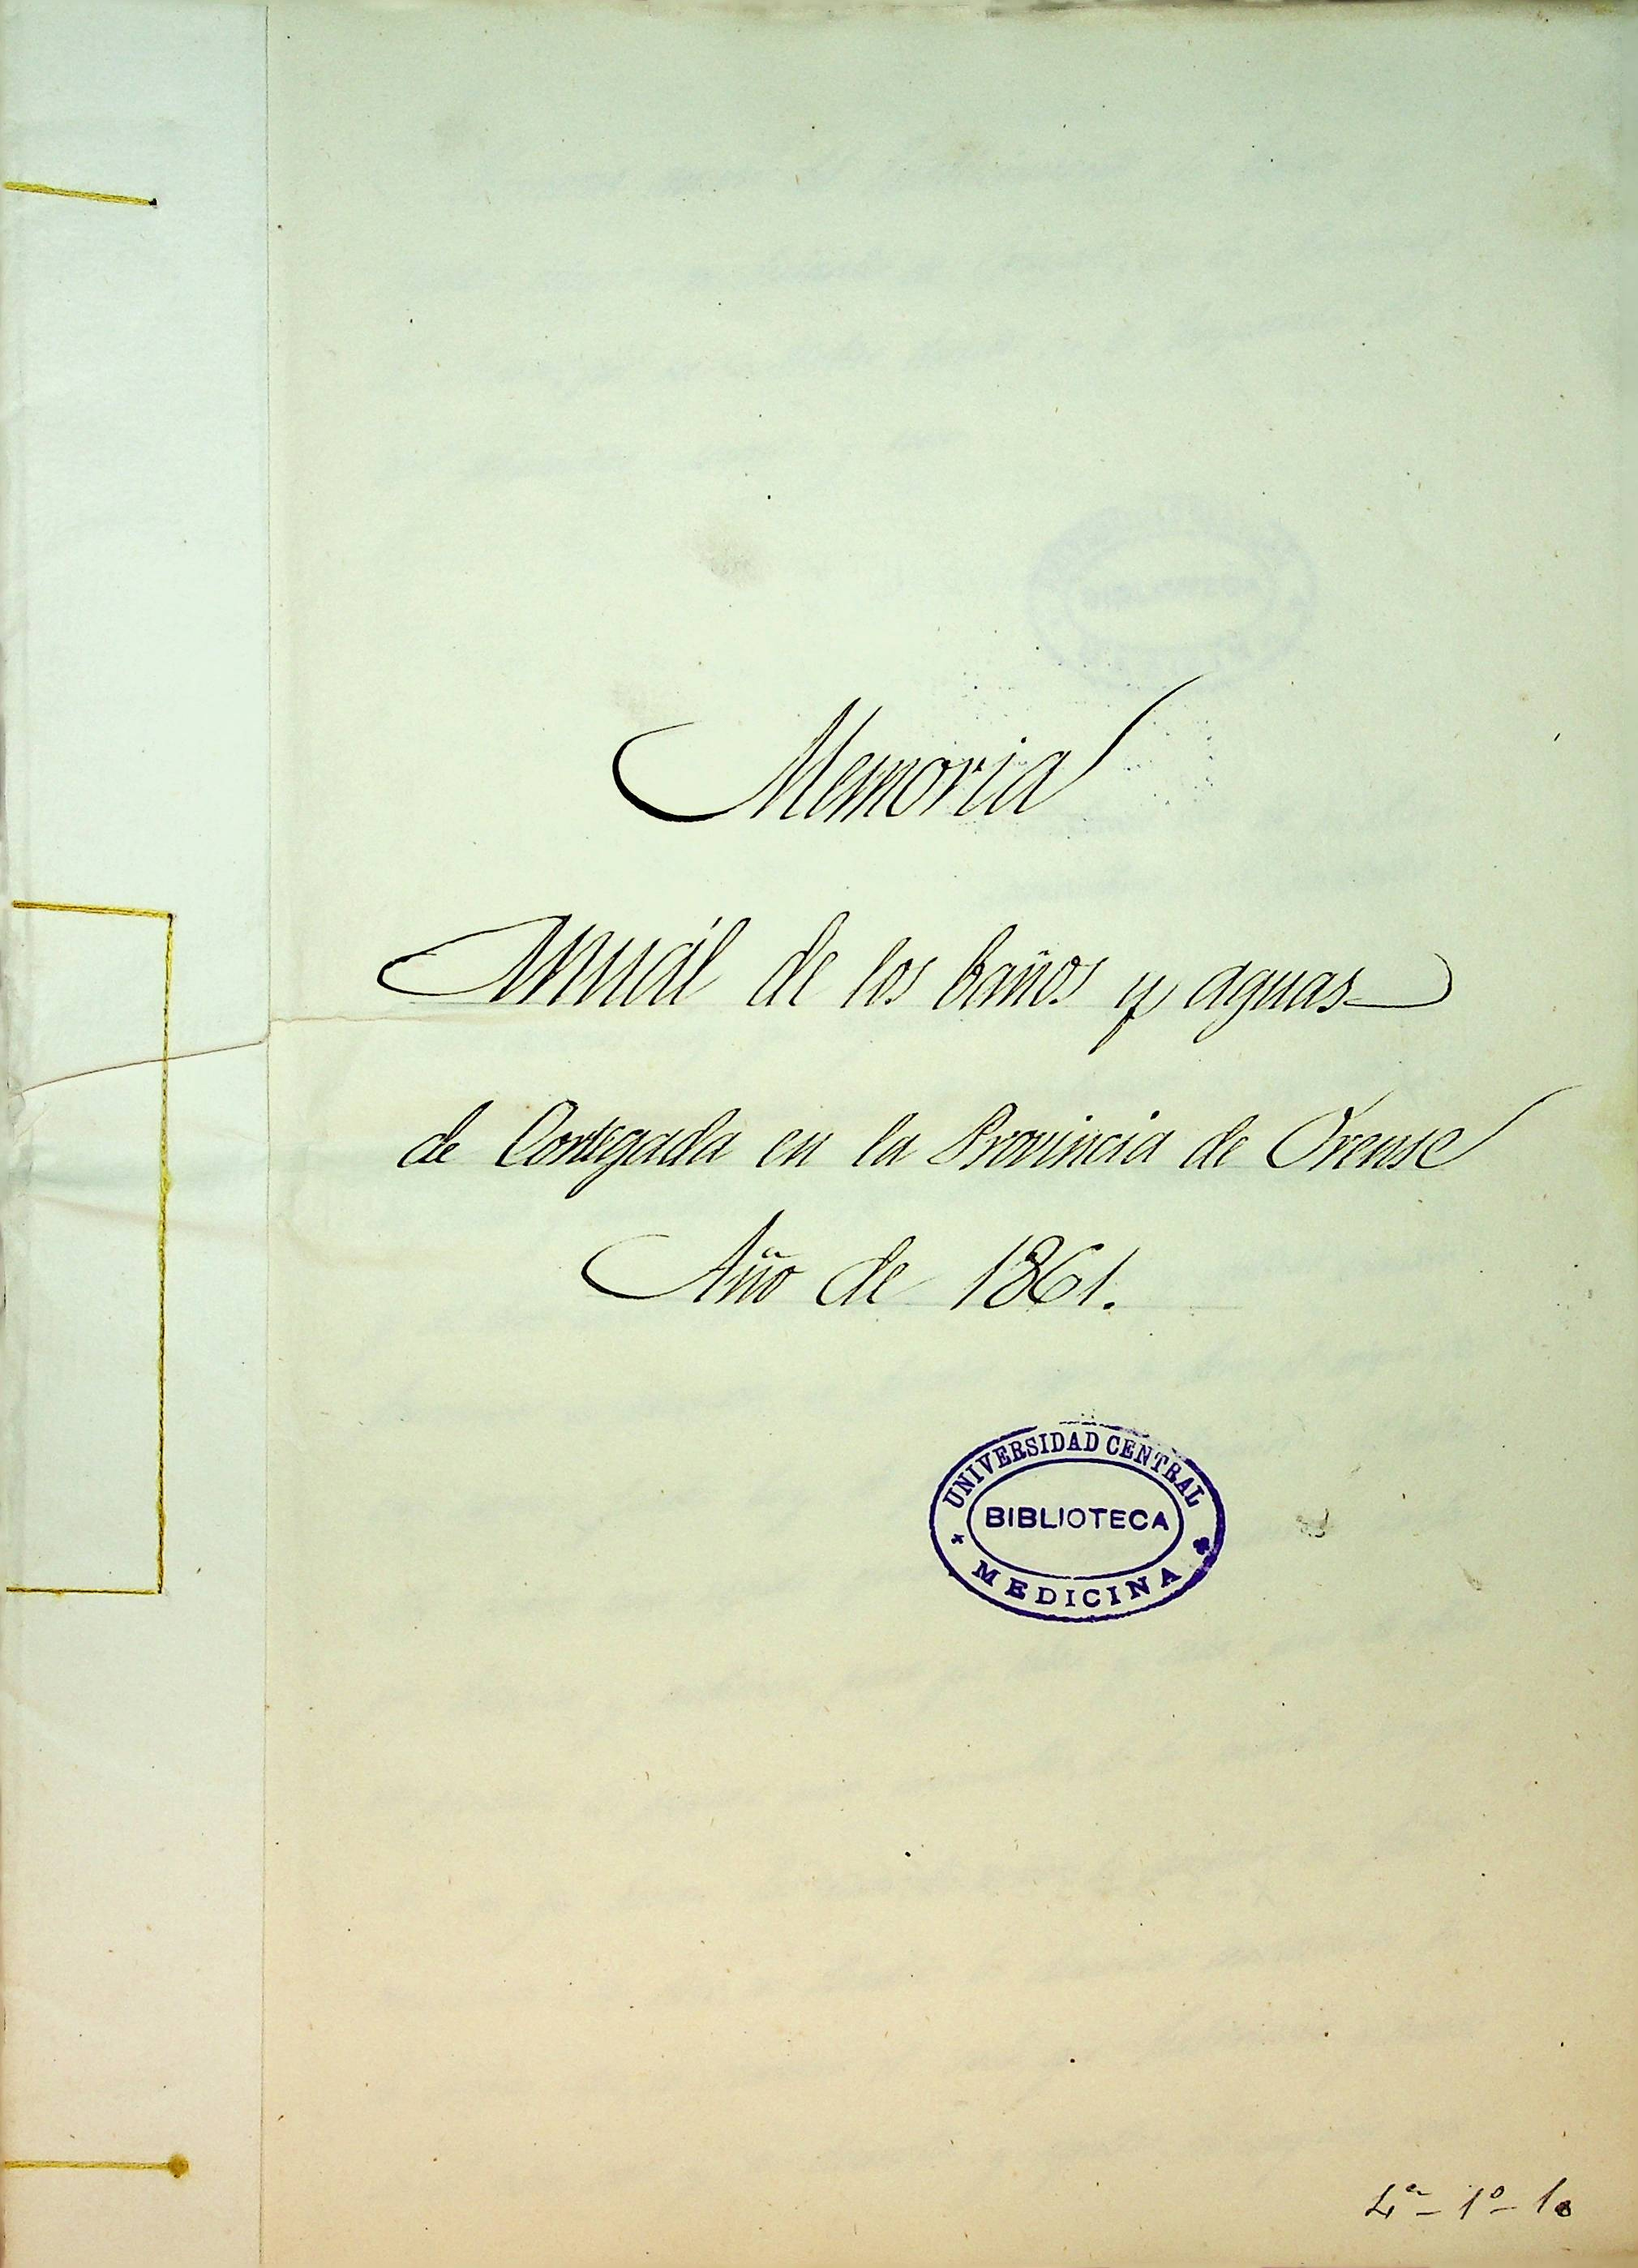 Memoria
Anuál de los baños y aguas
de Cortegada en la Provincia de Orense
Año de 1861.
UNIVERSIDAD CENTRAL
BIBLIOTECA
MEDICINA
4ª - 1º -